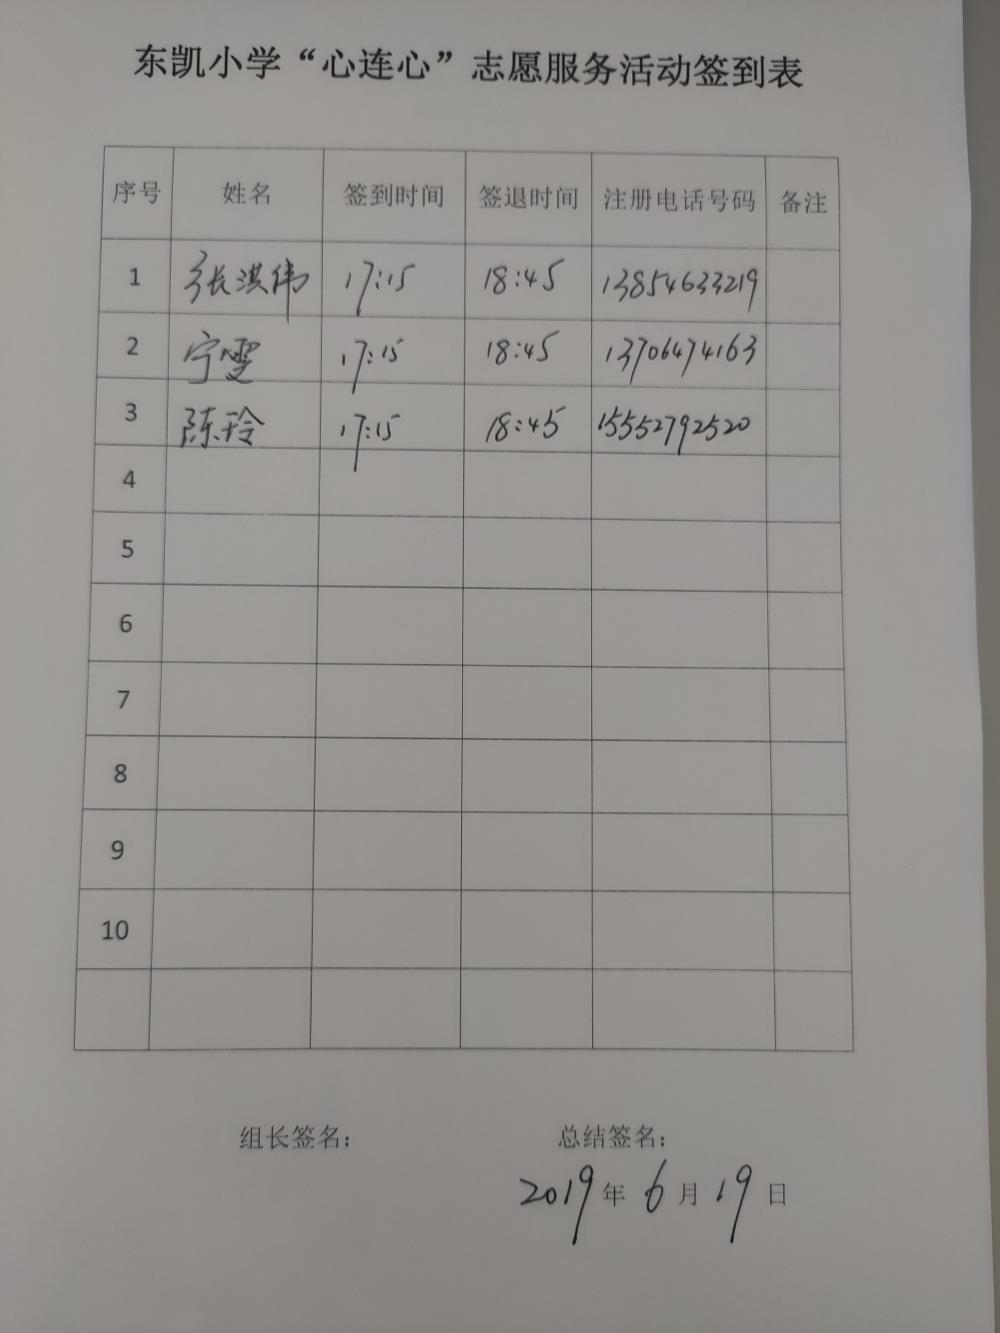 东凯小学“心连心”志愿服务活动签到表
序号 姓名 签到时间 签退时间 注册电话号码 备注
1 张洪伟 17:15 18:45 13854633219
2 宁雯 17:15 18:45 13706474163
3 陈玲 17:15 18:45 15552792520
4
5
6
7
8
9
10
组长签名： 总结签名：
2019年6月19日